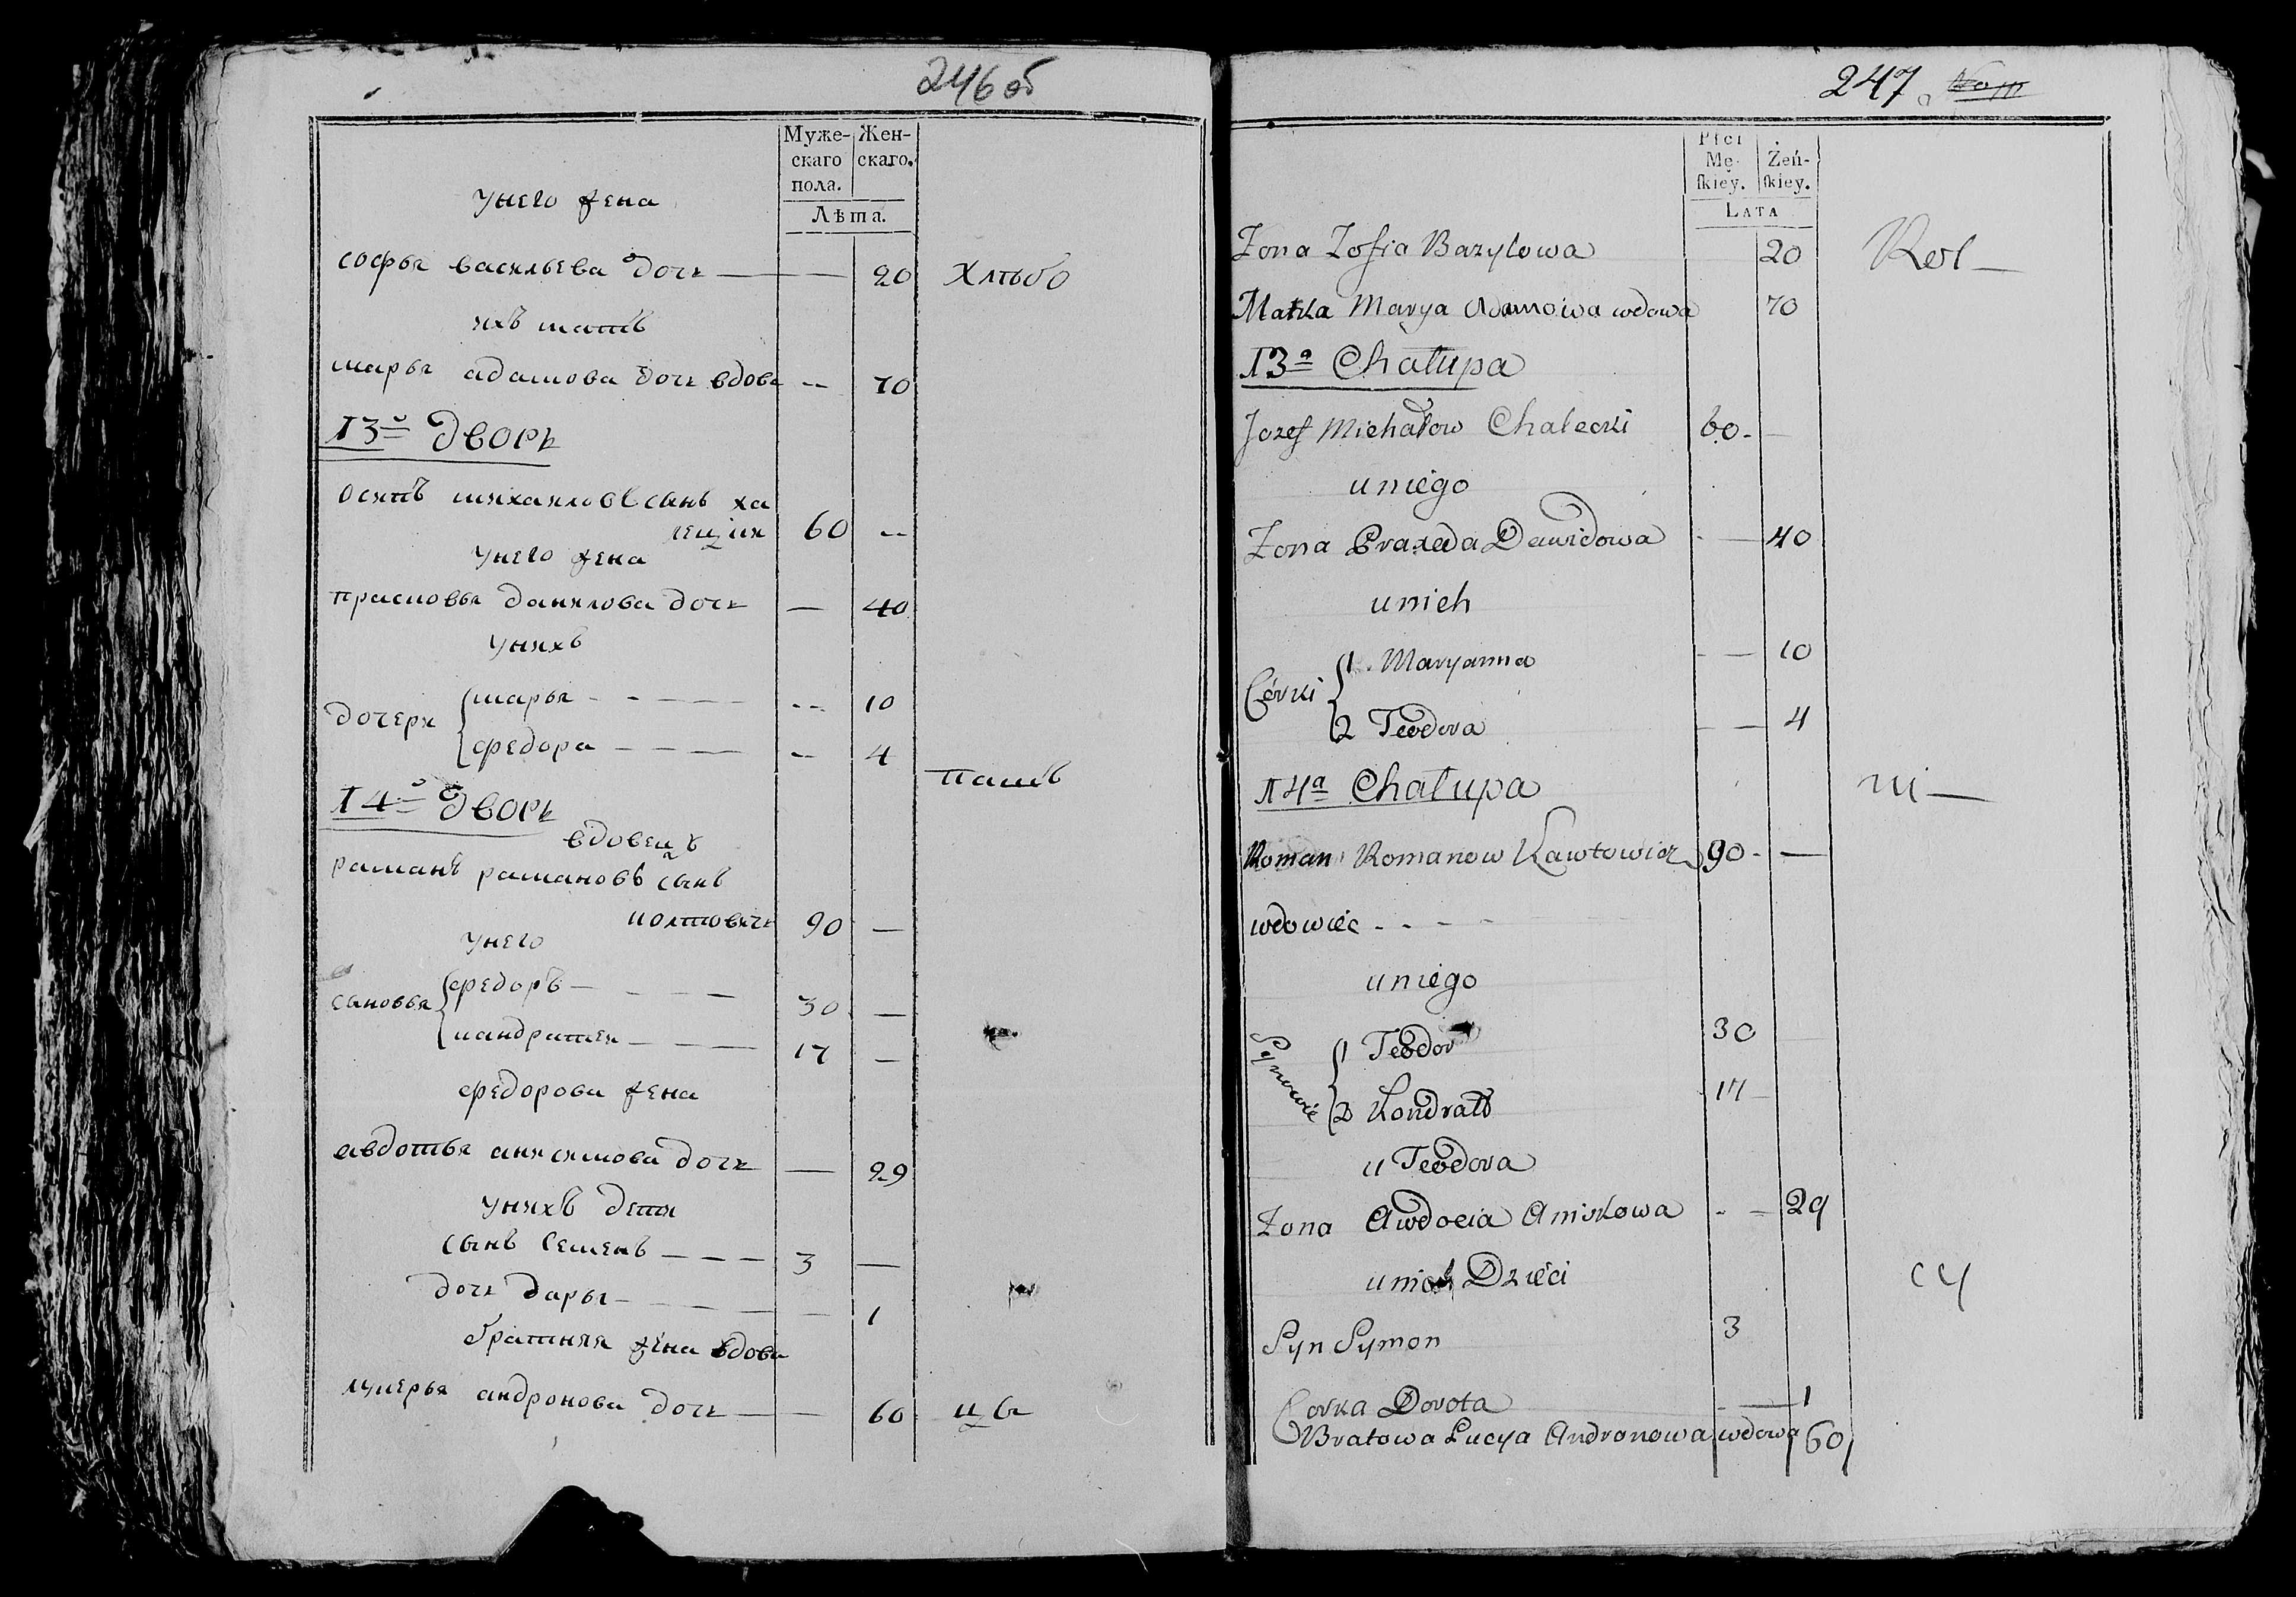 246 об
Муже- Жен-
скаго скаго.
пола.
Лѣта.
унего жена
софья васильева дочь — — 20 хлѣбо
ихъ мать
марья адамова дочь вдова -- 70
13й дворъ
осипъ михаиловъ сынъ ха
лецкiи 60 --
унего жена
прасковья данилова дочь — 40
унихъ
дочери { марья - - - — — -- 10
федора — — — — -- 4
пашъ
14й дворъ
вдовецъ
раманъ рамановъ сынъ
колтовичь 90 —
унего
сановья { федоръ — - - — 30 —
кандратеи — - — 17 —
федорова жена
авдотья анисимова дочь — 29
унихъ дети
сынъ семенъ — — — 3 —
дочь дарья - - - — — 1
братняя жена вдова
лукерья андронова дочь — — 60 цы
247
Płci
Mę- Żeń-
skiey. skiey.
LATA
Zona Zofia Bazylowa 20 Rol —
Matka Marya Adamowa wdowa 70
13a Chałupa
Jozef Michałow Chalecki 60 - —
u niego
Zona Praxeda Dawidowa - — 40
u nich
Córki { 1. Maryanna - — 10
2 Teodora — — 4
14a Chałupa ni —
Roman Romanow Kawtowicz 90 - —
wdowiec - - - -
u niego
Synowie { 1 Teodor 30
2 Kondratt 17
u Teodora
Zona Awdocia Aniskowa - — 29
u nich Dzieci cy
Syn Symon 3
Corka Dorota - — 1
Bratowa Lucya Andronowa wdowa 60